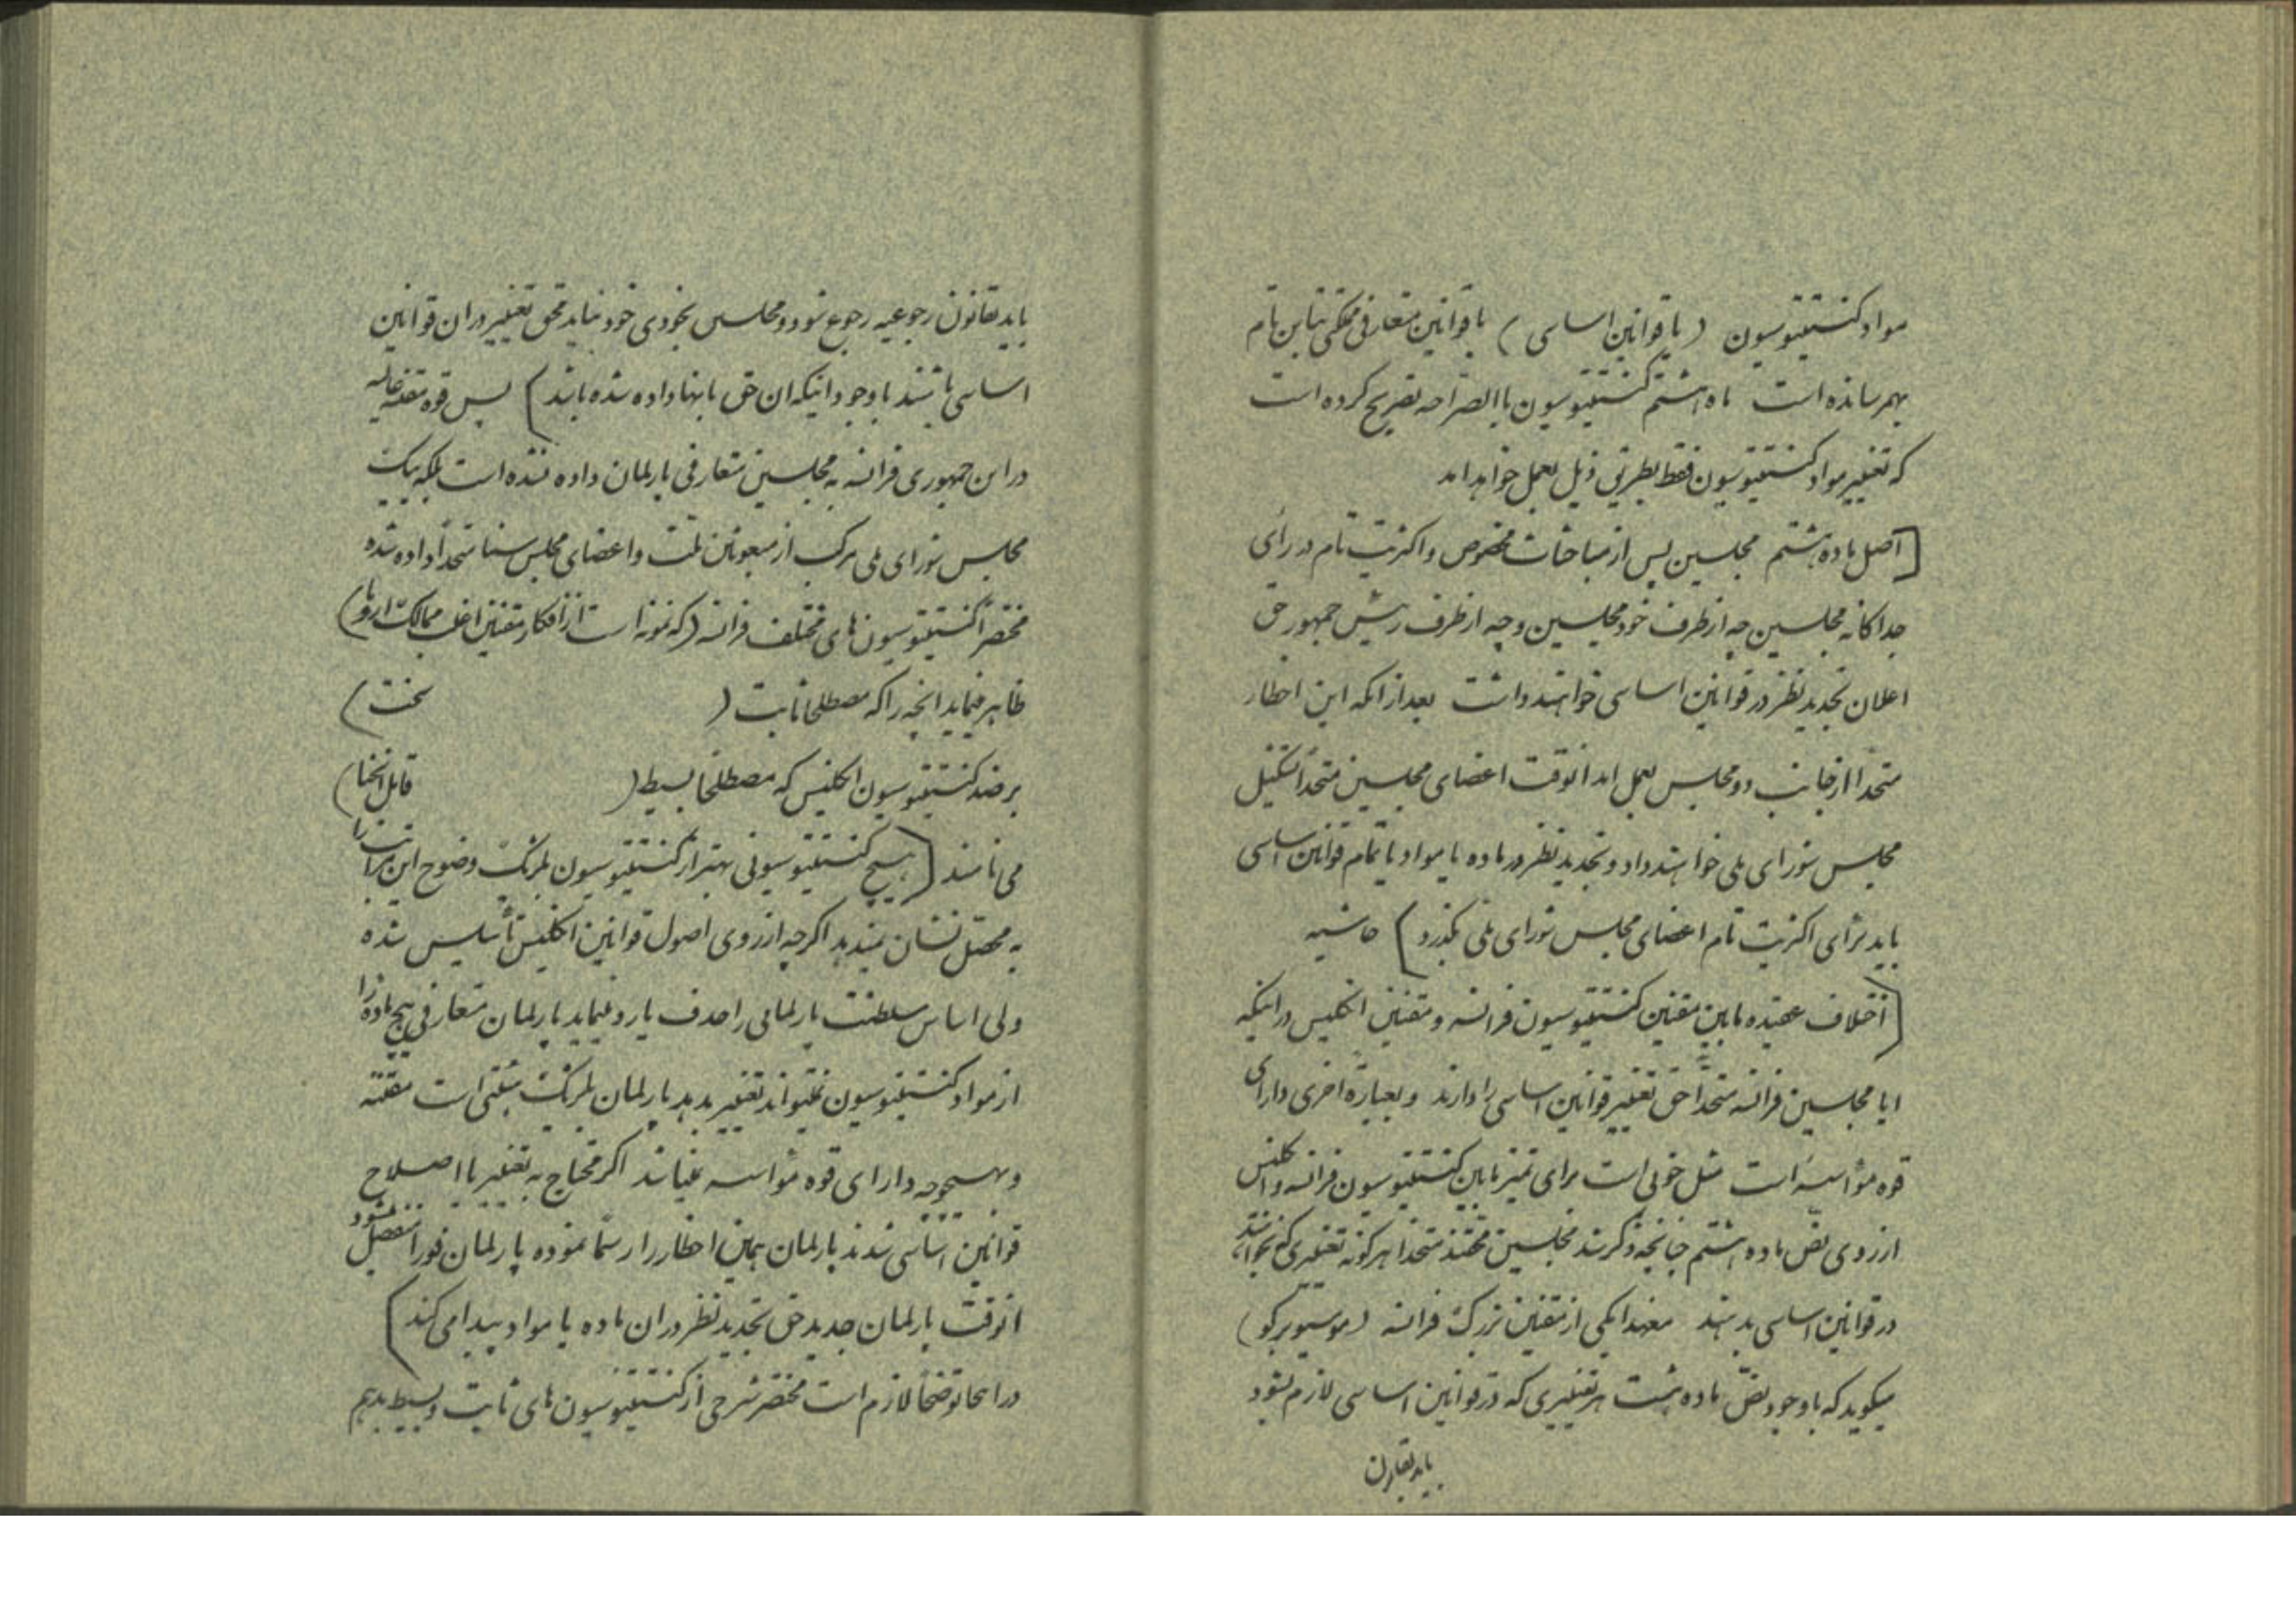 مواد کنستیتیوسیون (یا قوانین اساسی) با قوانین متعارفی مملکتی تباین تام
بهم رسانده است ماده هشتم کنستیتیوسیون باالصراحه تصریح کرده است
که تغییر مواد کنستیتیوسیون فقط بطریق ذیل بعمل خواهد امد
[اصل ماده هشتم مجلسین پس از مباحثات مخصوص و اکثریت تام در رأی
جداگانه مجلسین چه از طرف خود مجلسین و چه از طرف رئیس جمهور حق
اعلان تجدید نظر در قوانین اساسی خواهند داشت بعد از انکه این اخطار
متحداً از جانب دو مجلس بعمل امد انوقت اعضای مجلسین متحداً تشکیل
مجلس شورای ملی خواهند داد و تجدید نظر در ماده یا مواد یا تمام قوانین اساسی
باید برأی اکثریت تام اعضای مجلس شورای ملی بگذرد) حاشیه
[اختلاف عقیده مابین مقننین کنستیتیوسیون فرانسه و مقننین انگلیس در اینکه
ایا مجلسین فرانسه متحداً حق تغییر قوانین اساسی را دارند و بعبارة اخری دارای
قوه مؤاسسه است مثل خوبی است برای تمیز مابین کنستیتیوسیون فرانسه و انگلیس
از روی نص ماده هشتم چنانچه ذکر شد مجلسین محقند متحداً هر گونه تغییری که بخواهند
در قوانین اساسی بدهند معهذا یکی از مقننین بزرگ فرانسه (موسیو برکو)
میگوید که با وجود نص ماده هشت هر تغییری که در قوانین اساسی لازم بشود
باید بقانون
باید بقانون رجوعیه رجوع شود و مجلسین بخودی خود نباید محق تغییر در ان قوانین
اساسی باشند با وجود اینکه ان حق بانها داده شده باشد) پس قوه مقننه عالیه
در این جمهوری فرانسه به مجلسین متعارفی پارلمان داده نشده است بلکه بیک
مجلس شورای ملی مرکب از مبعوثین ملت و اعضای مجلس سنا متحداً داده شده
مختصراً کنستیتیوسیون های مختلف فرانسه (که نمونه است از افکار مقننین اغلب ممالک اروپا)
ظاهر مینماید انچه را که مصطلحاً ثابت ( سخت)
بر ضد کنستیتیوسیون انگلیس که مصطلحاً بسیط ( قابل انحنا)
می نامند [هیچ کنستیتیوسیونی بهتر از کنستیتیوسیون بلژیک وضوح این مراتب را
به محصل نشان نمیدهد اگرچه از روی اصول قوانین انگلیس تأسیس شده
ولی اساس سلطنت پارلمانی را حذف یا رد مینماید پارلمان متعارفی هیچ ماده را
از مواد کنستیتیوسیون نمیتواند تغییر بدهد پارلمان بلژیک هیئتی است مقننه
و بهیچوجه دارای قوه مؤاسسه نمیباشد اگر محتاج به تغییر یا اصلاح
قوانین اساسی شدند پارلمان همین اخطار را رسماً نموده پارلمان فوراً منفصل میشود
انوقت پارلمان جدید حق تجدید نظر در ان ماده یا مواد پیدا می کند)
در اینجا توضیحاً لازم است مختصر شرحی از کنستیتیوسیون های ثابت و بسیط بدهیم